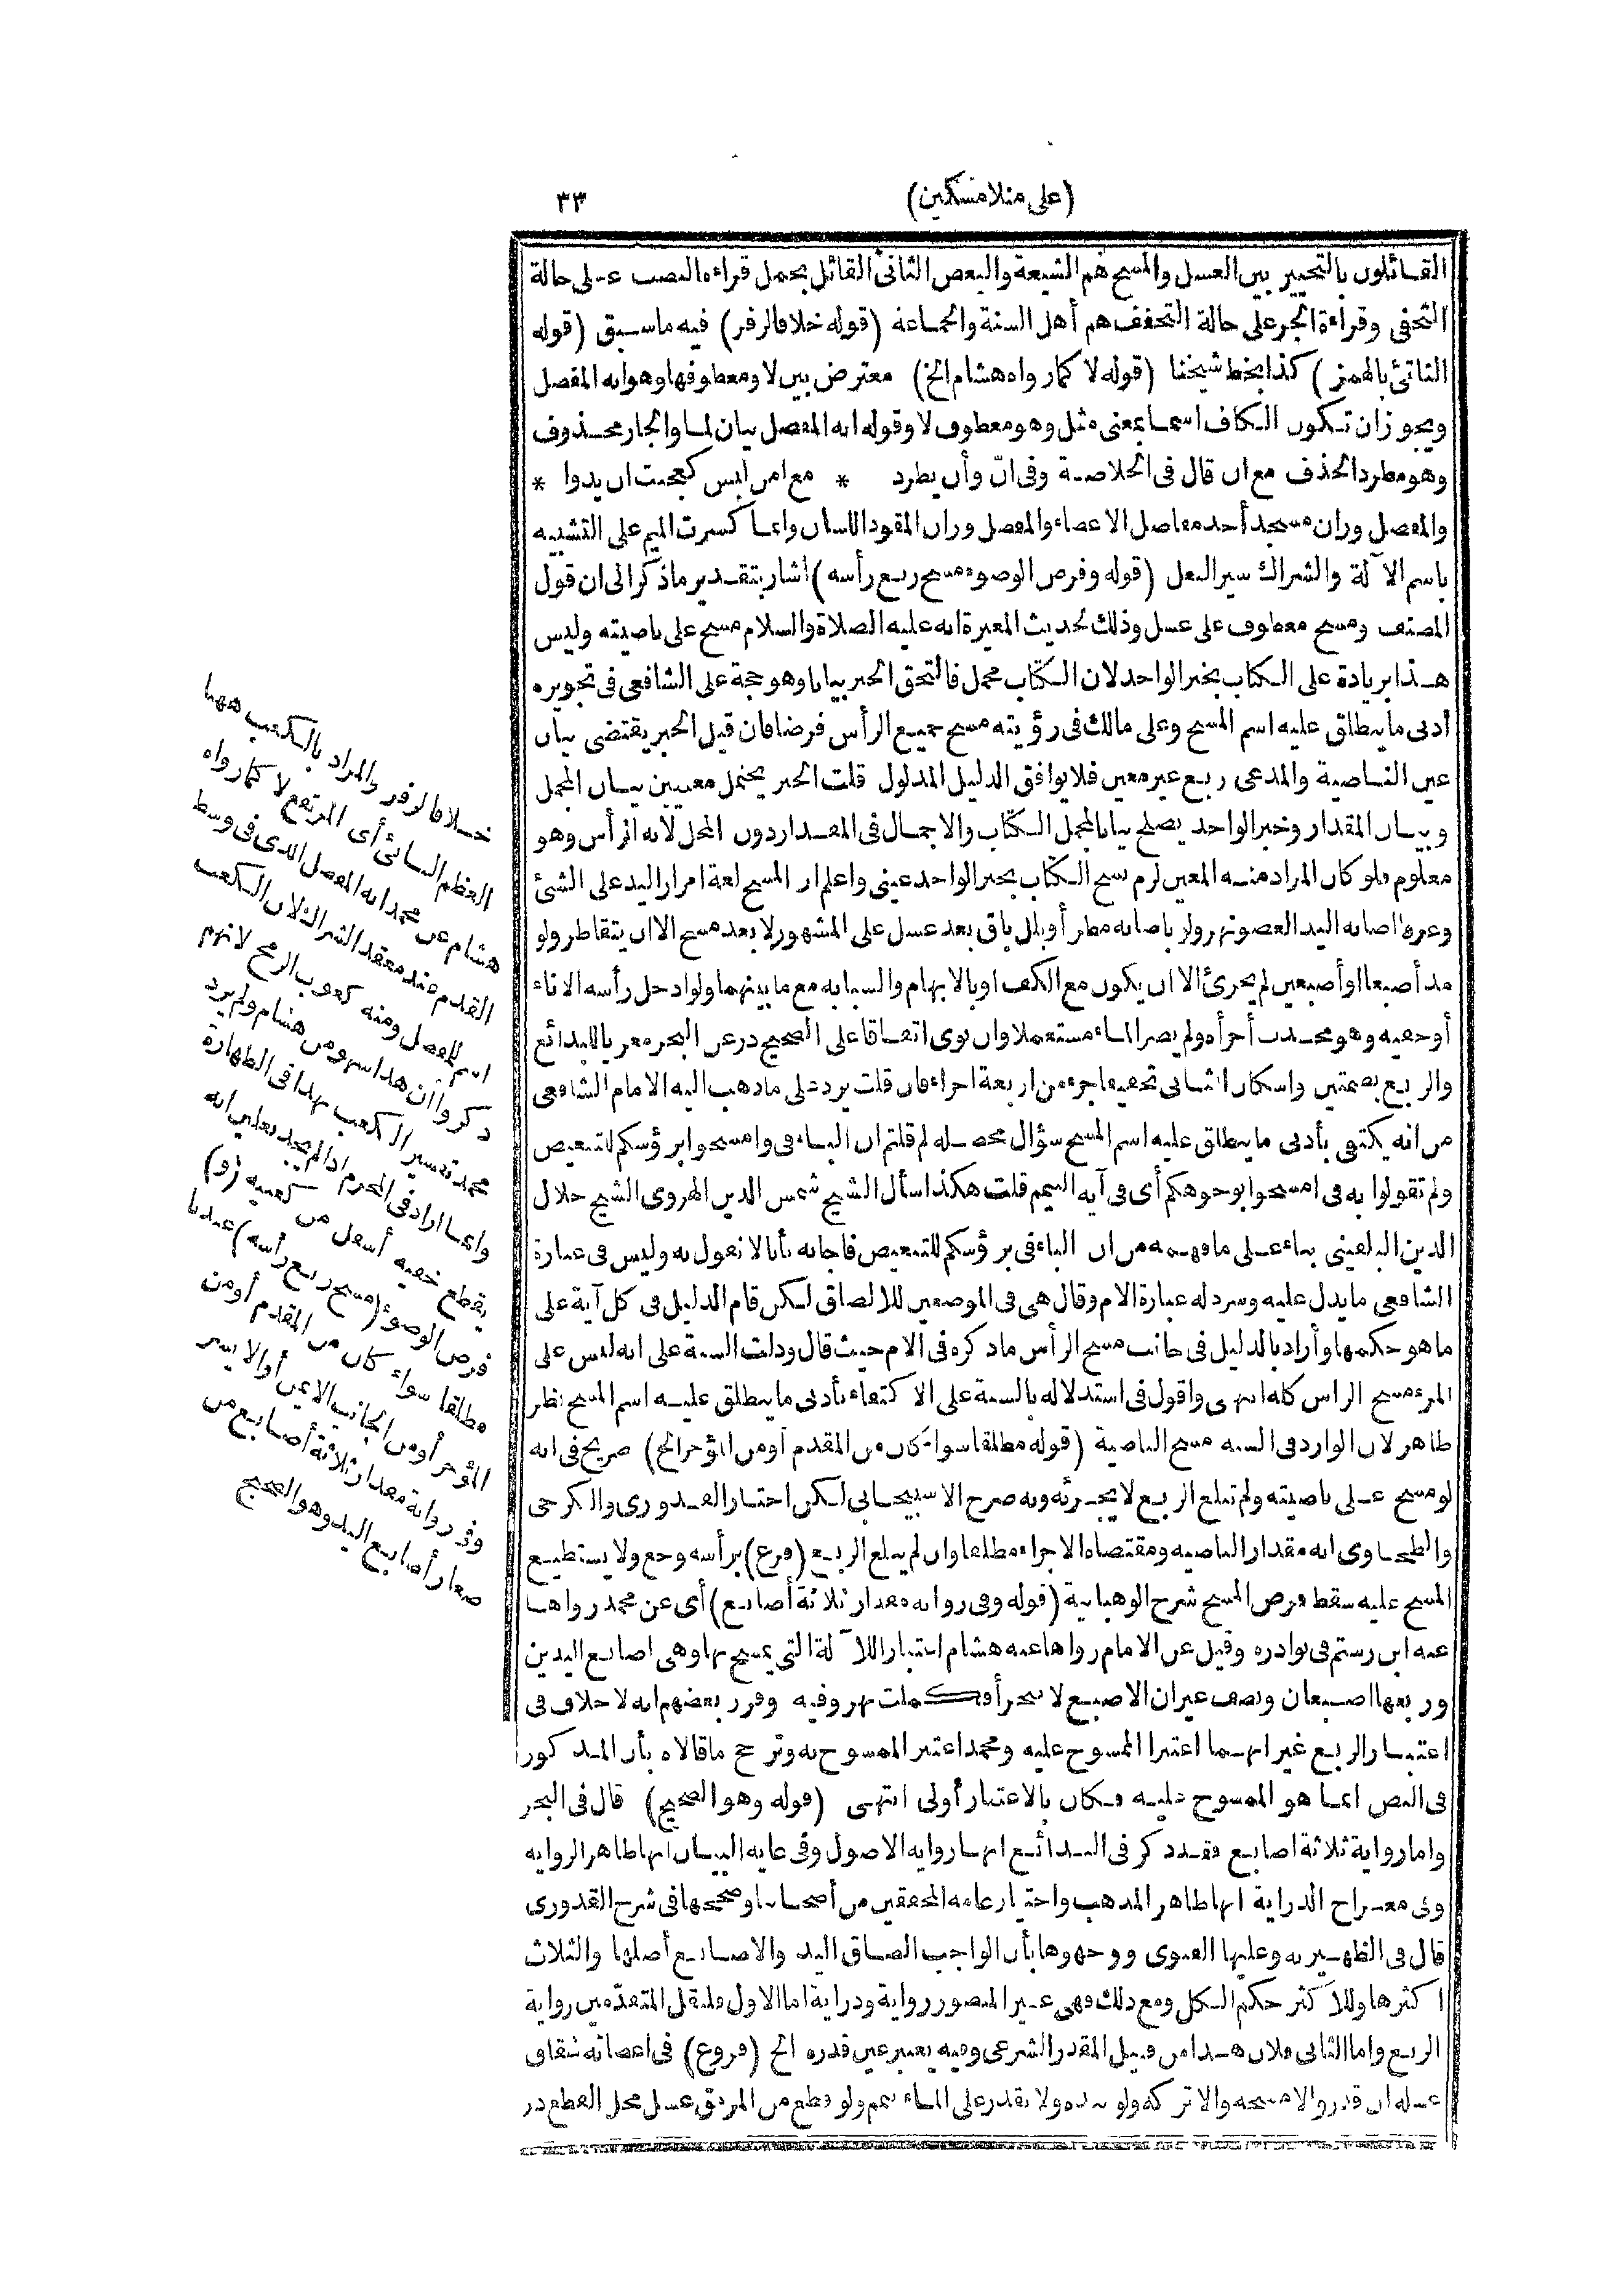 (على منلا مسكين) ٣٣
القائلون بالتخيير بين الغسل والمسح هم الشيعة والبعض الثانى القائل بحمل قراءة النصب على حالة
التخفى وقراءة الجر على حالة التخفف هم أهل السنة والجماعة (قوله خلافا لزفر) فيه ما سبق (قوله
الناتئ بالهمز) كذا بخط شيخنا (قوله لا كما رواه هشام الخ) معترض بين لا ومعطوفها وهو انه المفصل
ويجوز ان تكون الكاف اسما بمعنى مثل وهو معطوف لا وقوله انه المفصل بيان لما والجار محذوف
وهو مطرد الحذف مع ان قال فى الخلاصة وفى انّ وأن يطرد * مع امن لبس كعجبت ان يدوا *
والمفصل وزان مسجد أحد مفاصل الاعضاء والمفصل وزان المقود اللسان وانما كسرت الميم على التشبيه
باسم الآلة والشراك سير النعل (قوله وفرض الوضوء مسح ربع رأسه) اشار بتقدير ما ذكر الى ان قول
المصنف ومسح معطوف على غسل وذلك لحديث المغيرة انه عليه الصلاة والسلام مسح على ناصيته وليس
هذا بزيادة على الكتاب بخبر الواحد لان الكتاب مجمل فالتحق الخبر بيانا وهو حجة على الشافعى فى تجويزه
أدنى ما ينطلق عليه اسم المسح وعلى مالك فى رؤيته مسح جميع الرأس فرضا فان قيل الخبر يقتضى بيان
عين الناصية والمدعى ربع غير معين فلا يوافق الدليل المدلول قلت الخبر يحتمل معنيين بيان المجمل
وبيان المقدار وخبر الواحد يصلح بيانا لمجمل الكتاب والاجمال فى المقدار دون المحل لانه الرأس وهو
معلوم فلو كان المراد منه المعين لزم نسخ الكتاب بخبر الواحد عينى واعلم ان المسح لغة امرار اليد على الشئ
وعرفا اصابة اليد العضو نهر ولو باصابة مطر أو بلل باق بعد غسل على المشهور لا بعد مسح الا ان يتقاطر ولو
مد أصبعا او أصبعين لم يجزئ الا ان يكون مع الكف او بالابهام والسبابة مع ما بينهما ولو ادخل رأسه الاناء
أو خفيه وهو محدث أجزأه ولم يصر الماء مستعملا وان نوى اتفاقا على الصحيح در عن البحر معزيا للبدائع
والربع بضمتين واسكان الثانى تخفيفا جزء من اربعة اجزاء فان قلت يرد على ما ذهب اليه الامام الشافعى
من انه يكتفى بأدنى ما ينطلق عليه اسم المسح سؤال محصله لم قلتم ان الباء فى وامسحوا برؤسكم للتبعيض
ولم تقولوا به فى امسحوا بوجوهكم أى فى آية التيمم قلت هكذا سأل الشيخ شمس الدين الهروى الشيخ جلال
الدين البلقينى بناء على ما فهمه من ان الباء فى برؤسكم للتبعيض فاجابه بأنا لا نقول به وليس فى عبارة
الشافعى ما يدل عليه وسرد له عبارة الام وقال هى فى الموضعين للالصاق لكن قام الدليل فى كل آية على
ما هو حكمها وأراد بالدليل فى جانب مسح الرأس ما ذكره فى الام حيث قال ودلت السنة على انه ليس على
المرء مسح الراس كله انتهى واقول فى استدلاله بالسنة على الاكتفاء بأدنى ما ينطلق عليه اسم المسح نظر
ظاهر لان الوارد فى السنة مسح الناصية (قوله مطلقا سواء كان من المقدم أو من المؤخر الخ) صريح فى انه
لو مسح على ناصيته ولم تبلغ الربع لا يجزئه وبه صرح الاسبيجابى لكن اختار القدورى والكرخى
والطحاوى انه مقدار الناصية ومقتضاه الاجزاء مطلقا وان لم يبلغ الربع (فرع) برأسه وجع ولا يستطيع
المسح عليه سقط فرض المسح شرح الوهبانية (قوله وفى رواية مقدار ثلاثة أصابع) أى عن محمد رواها
عنه ابن رستم فى نوادره وقيل عن الامام رواها عنه هشام اعتبارا للآلة التى يمسح بها وهى اصابع اليدين
وربعها اصبعان ونصف غير ان الاصبع لا يتجزأ فكملت نهر وفيه وقرر بعضهم انه لا خلاف فى
اعتبار الربع غير انهما اعتبرا الممسوح عليه ومحمد اعتبر الممسوح به وترجح ما قالاه بأن المذكور
فى النص انما هو الممسوح عليه فكان بالاعتبار أولى انتهى (قوله وهو الصحيح) قال فى البحر
واما رواية ثلاثة اصابع فقد ذكر فى البدائع انها رواية الاصول وفى غاية البيان انها ظاهر الرواية
وفى معراج الدراية انها ظاهر المذهب واختيار عامة المحققين من أصحابنا وصححها فى شرح القدورى
قال فى الظهيرية وعليها الفتوى ووجهوها بأن الواجب الصاق اليد والاصابع أصلها والثلاث
اكثرها وللاكثر حكم الكل ومع ذلك فهى غير المنصور رواية ودراية اما الاول فلنقل المتقدمين رواية
الربع واما الثانى فلان هذا من قبيل المقدر الشرعى وفيه يعتبر عين قدره الخ (فروع) فى اعضائه شقاق
غسله ان قدر والا مسحه والا تركه ولو بيده ولا يقدر على الماء تيمم ولو قطع من المرفق غسل محل القطع در
خلافا لزفر والمراد بالكعب ههنا
العظم الناتئ أى المرتفع لا كما رواه
هشام عن محمد انه المفصل الذى فى وسط
القدم عند معقد الشراك لان الكعب
اسم للمفصل ومنه كعوب الرمح لانهم
ذكروا أن هذا سهو من هشام ولم يرد
محمد تفسير الكعب بهذا فى الطهارة
وانما اراد فى المحرم اذا لم يجد نعلين انه
يقطع خفيه أسفل من كعبيه (و)
فرض الوضوء (مسح ربع رأسه) عندنا
مطلقا سواء كان من المقدم أو من
المؤخر أو من الجانب الايمن أو الايسر
وفى رواية مقدار ثلاثة أصابع من
صغار أصابع اليد وهو الصحيح